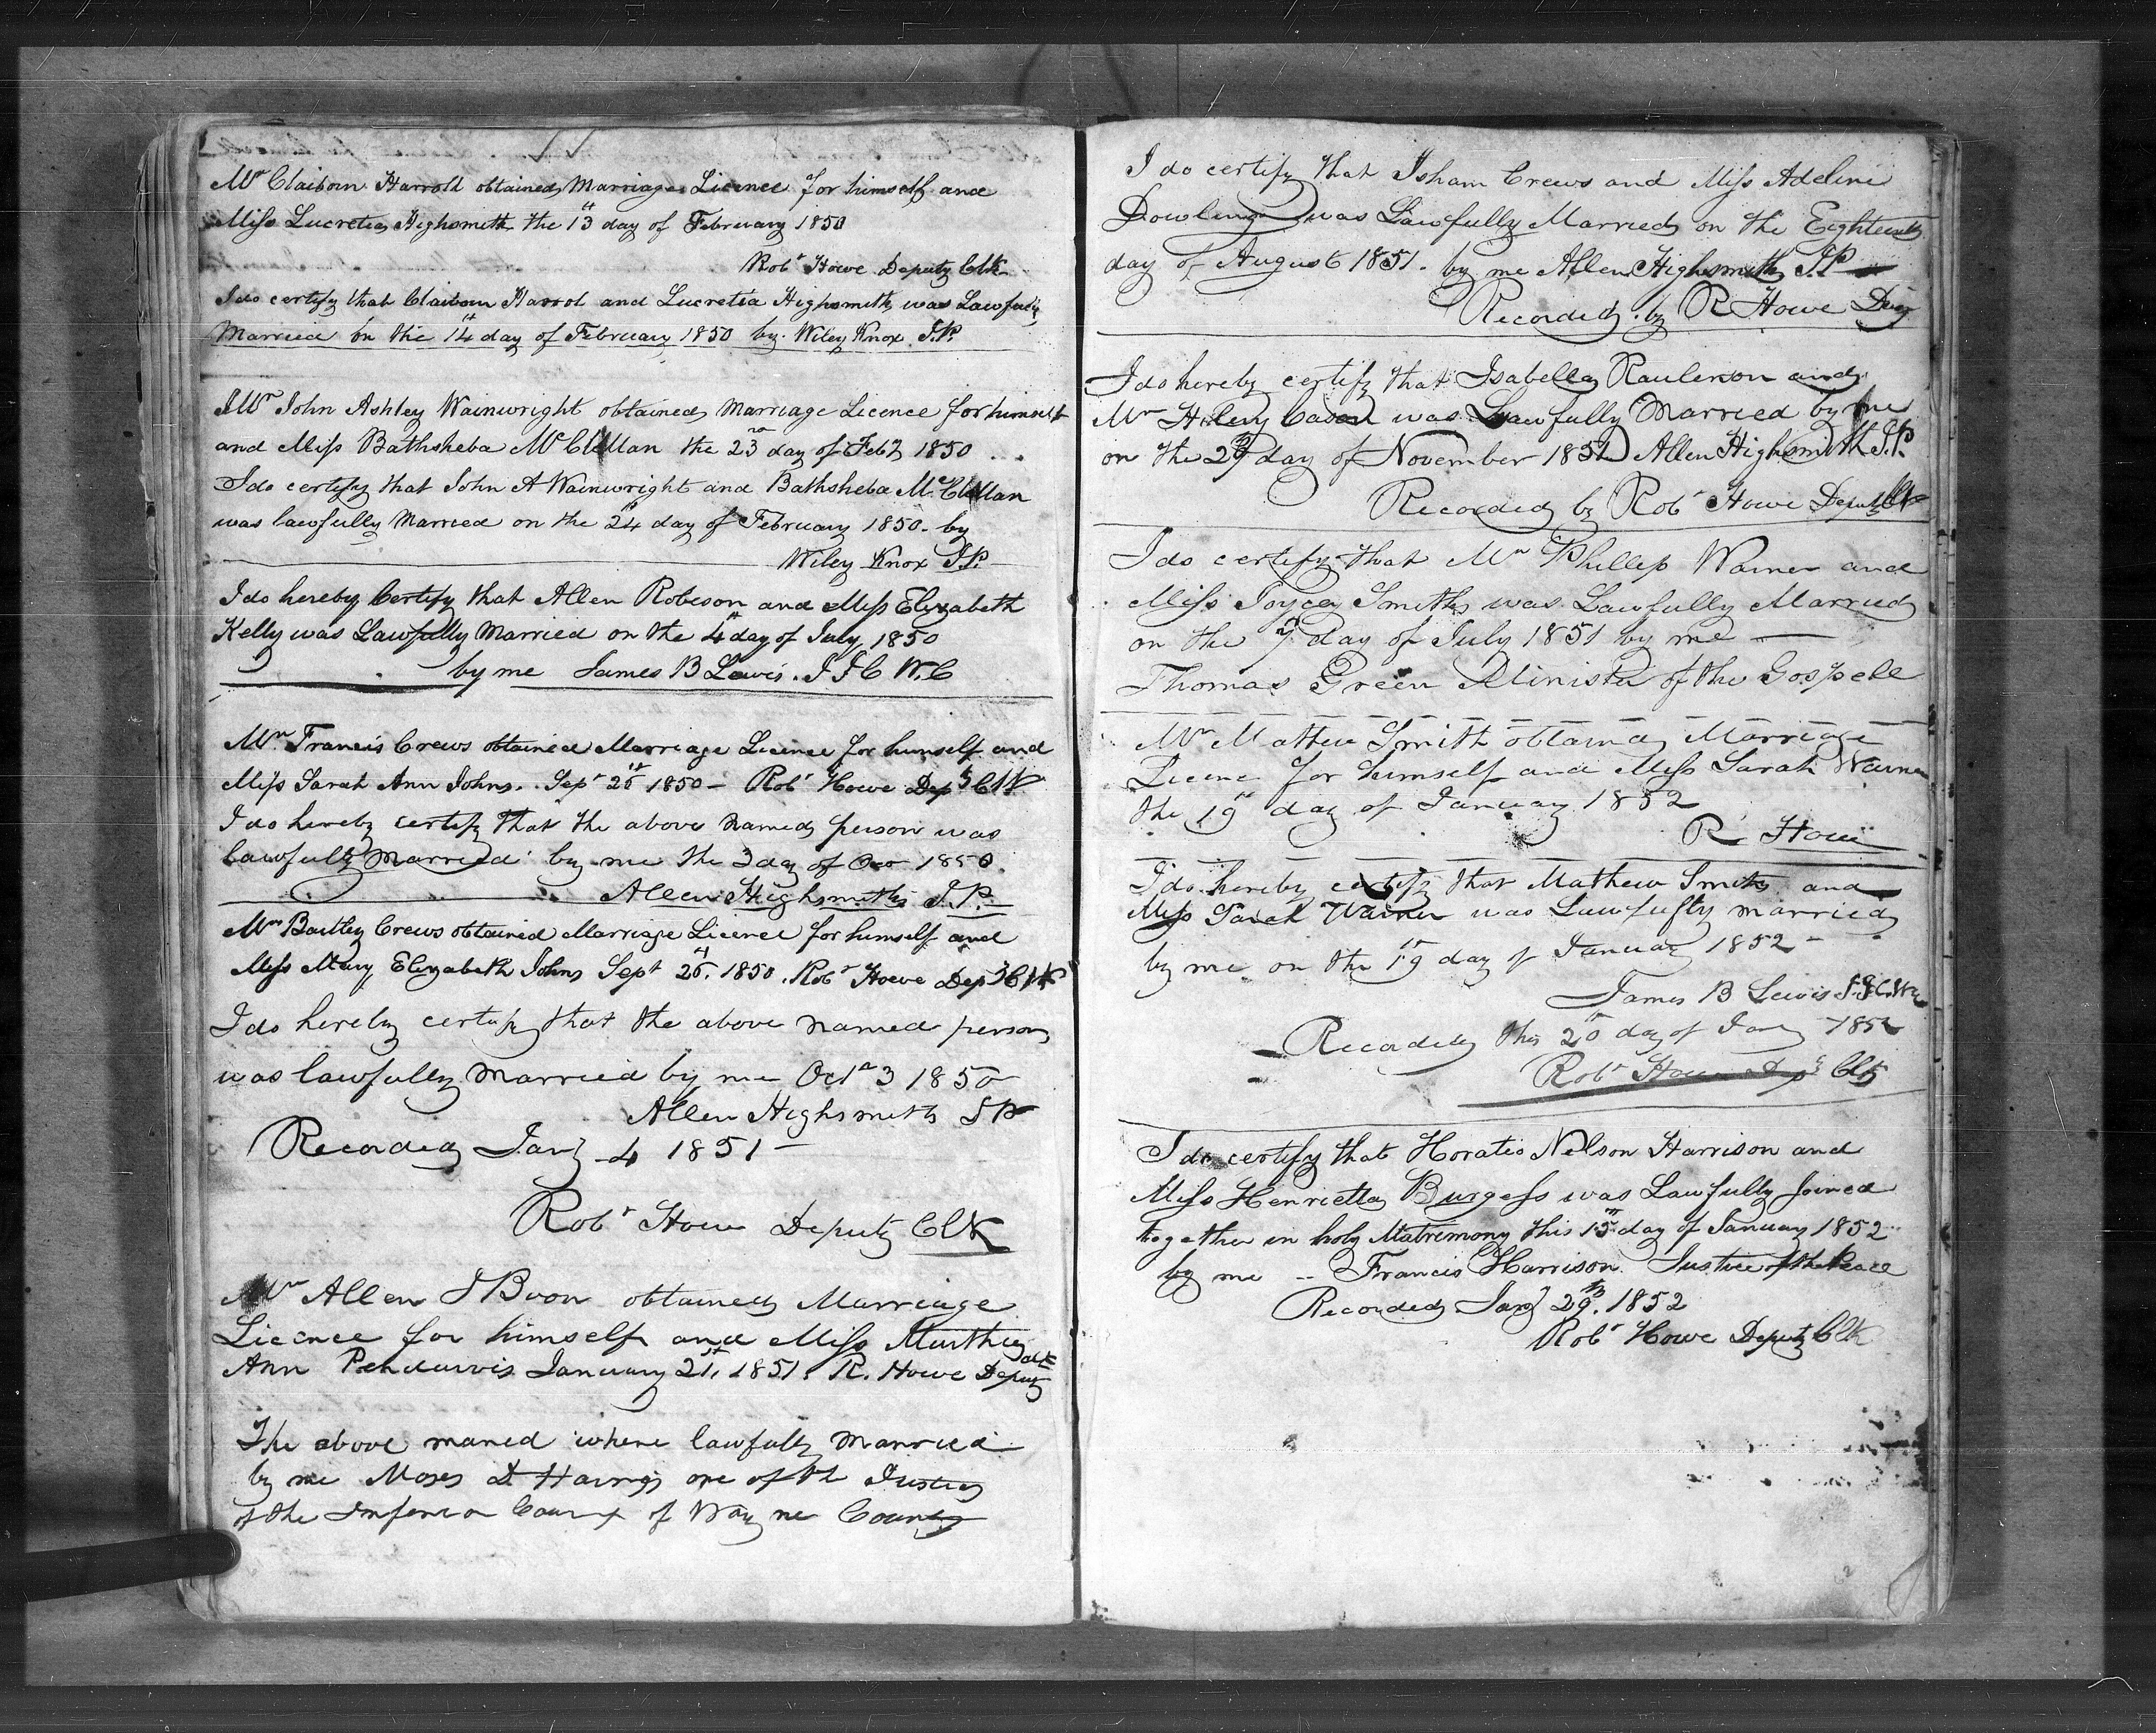 Mr Claiborn Harrold obtained Marriage Licence for himself and
Miss Lucretia Highsmith the 13th day of February 1850
Robt Howe Deputy Clk
I do certify that Claiborn Harrol and Lucretia Highsmith was Lawfully
Married on the 14th day of February 1850 by Wiley Knox J.P.
Mr John Ashley Wainwright obtained Marriage Licence for himself
and Miss Bathsheba McClellan the 23rd day of Feby 1850
I do certify that John A Wainwright and Bathsheba McClellan
was lawfully Married on the 24th day of February 1850. by
Wiley Knox J.P.
I do hereby Certify that Allen Robeson and Miss Elizabeth
Kelly was Lawfully Married on the 4th day of July 1850
by me James B Lewis. J I C W.C
Mr Francis Crews obtained Marriage Licence for himself and
Miss Sarah Ann Johns. Sept 25th 1850 – Robt Howe Depy Clk
I do hereby certify that the above named person was
lawfully Married by me the 3 day of Oct 1850.
Allen Highsmith J.P.
Mr Bartley Crews obtained Marriage Licence for himself and
Miss Mary Elizabeth Johns Sept 25th. 1850. Robt Howe Depy Clk
I do hereby certify that the above named person
was lawfully Married by me Octr 3 1850
Allen Highsmith J P
Recorded Jany 4 1851 –
Robt Howe Deputy Clk
Mr Allen J Boon obtained Marriage
Licence for himself and Miss Marthy
Ann Pendarvis January 21st, 1851. R. Howe Deputy Clk
The above maned where lawfully Married
by me Moses D Harris one of the Justices
of the Inferior Court of Wayne County
I do certify that Isham Crews and Miss Adeline
Dowling was Lawfully Married on the Eighteenth
day of August 1851. by me Allen Highsmith J.P
Recorded by R Howe Depy
I do hereby certify that Isabella Raulerson and
Mr Hilery Cason was Lawfully Married by me
on the day of November 1851 Allen Highsmith J.P.
Recorded by Robt Howe Deputy Clk
I do certify that Mr Phillip Warner and
Miss Joycey Smith was Lawfully Married
on the 7 day of July 1851 by me —
Thomas Green Minister of the Gospell
Mr Mathew Smith obtained Marriage
Licence for himself and Miss Sarah Warner
the 19th day of January 1852
R Howe
I do hereby certify that Mathew Smith and
Miss Sarah Warner was Lawfully married
by me on the 19th day of January 1852 –
James B Lewis J.I.C.W.C
Recorded this 20th day of Jany 1852
Robt Howe Depy Clk
I do certify that Horatio Nelson Harrison and
Miss Henrietta Burgess was Lawfully Joined
together in holy Matremony this 15th day of January 1852
by me -- Francis Harrison Justice of the Peace
Recorded Jany 29th. 1852
Robt Howe Deputy Clk